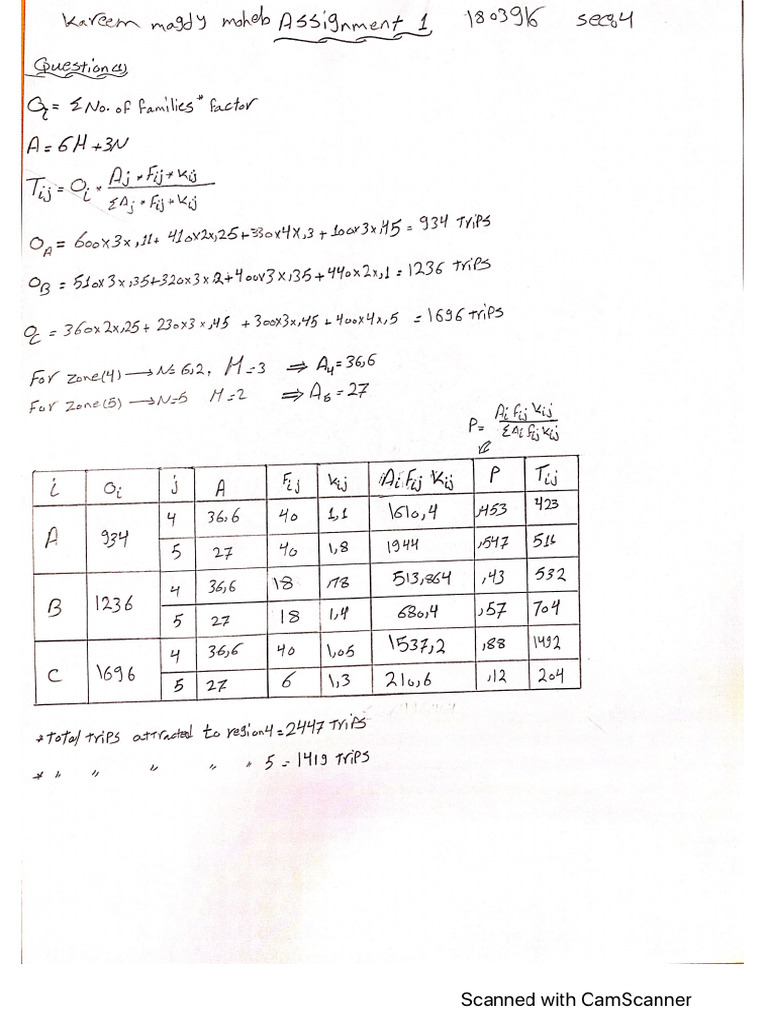 Kareem magdy moheb Assignment 1 180396 sec:4
Question(1)
O_i = Σ No. of families * factor
A = 6H + 3N
T_ij = O_i * (A_j * F_ij * K_ij) / (Σ A_j * F_ij * K_ij)
O_A = 600x3x,11+ 410x2x,25+330x4x,3 + 100x3x,45 = 934 Trips
O_B = 510x3x,35+320x3x,2+400x3x,35+440x2x,1 = 1236 Trips
O_C = 360x2x,25 + 230x3x,45 + 300x3x,45 + 400x4x,5 = 1696 Trips
For zone(4) → N= 6,2, H=3 ⇒ A_4=36,6
For zone(5) → N=5 H=2 ⇒ A_5=27
P= A_i F_ij K_ij / Σ A_i F_ij K_ij
i O_i j A F_ij K_ij A_i F_ij K_ij P T_ij
A 934 4 36,6 40 1,1 1610,4 ,453 423
5 27 40 1,8 1944 ,547 511
B 1236 4 36,6 18 ,78 513,864 ,43 532
5 27 18 1,4 680,4 ,57 704
C 1696 4 36,6 40 1,05 1537,2 ,88 1492
5 27 6 1,3 210,6 ,12 204
*Total trips attracted to region 4 = 2447 Trips
* " " " " " 5 = 1419 Trips
Scanned with CamScanner